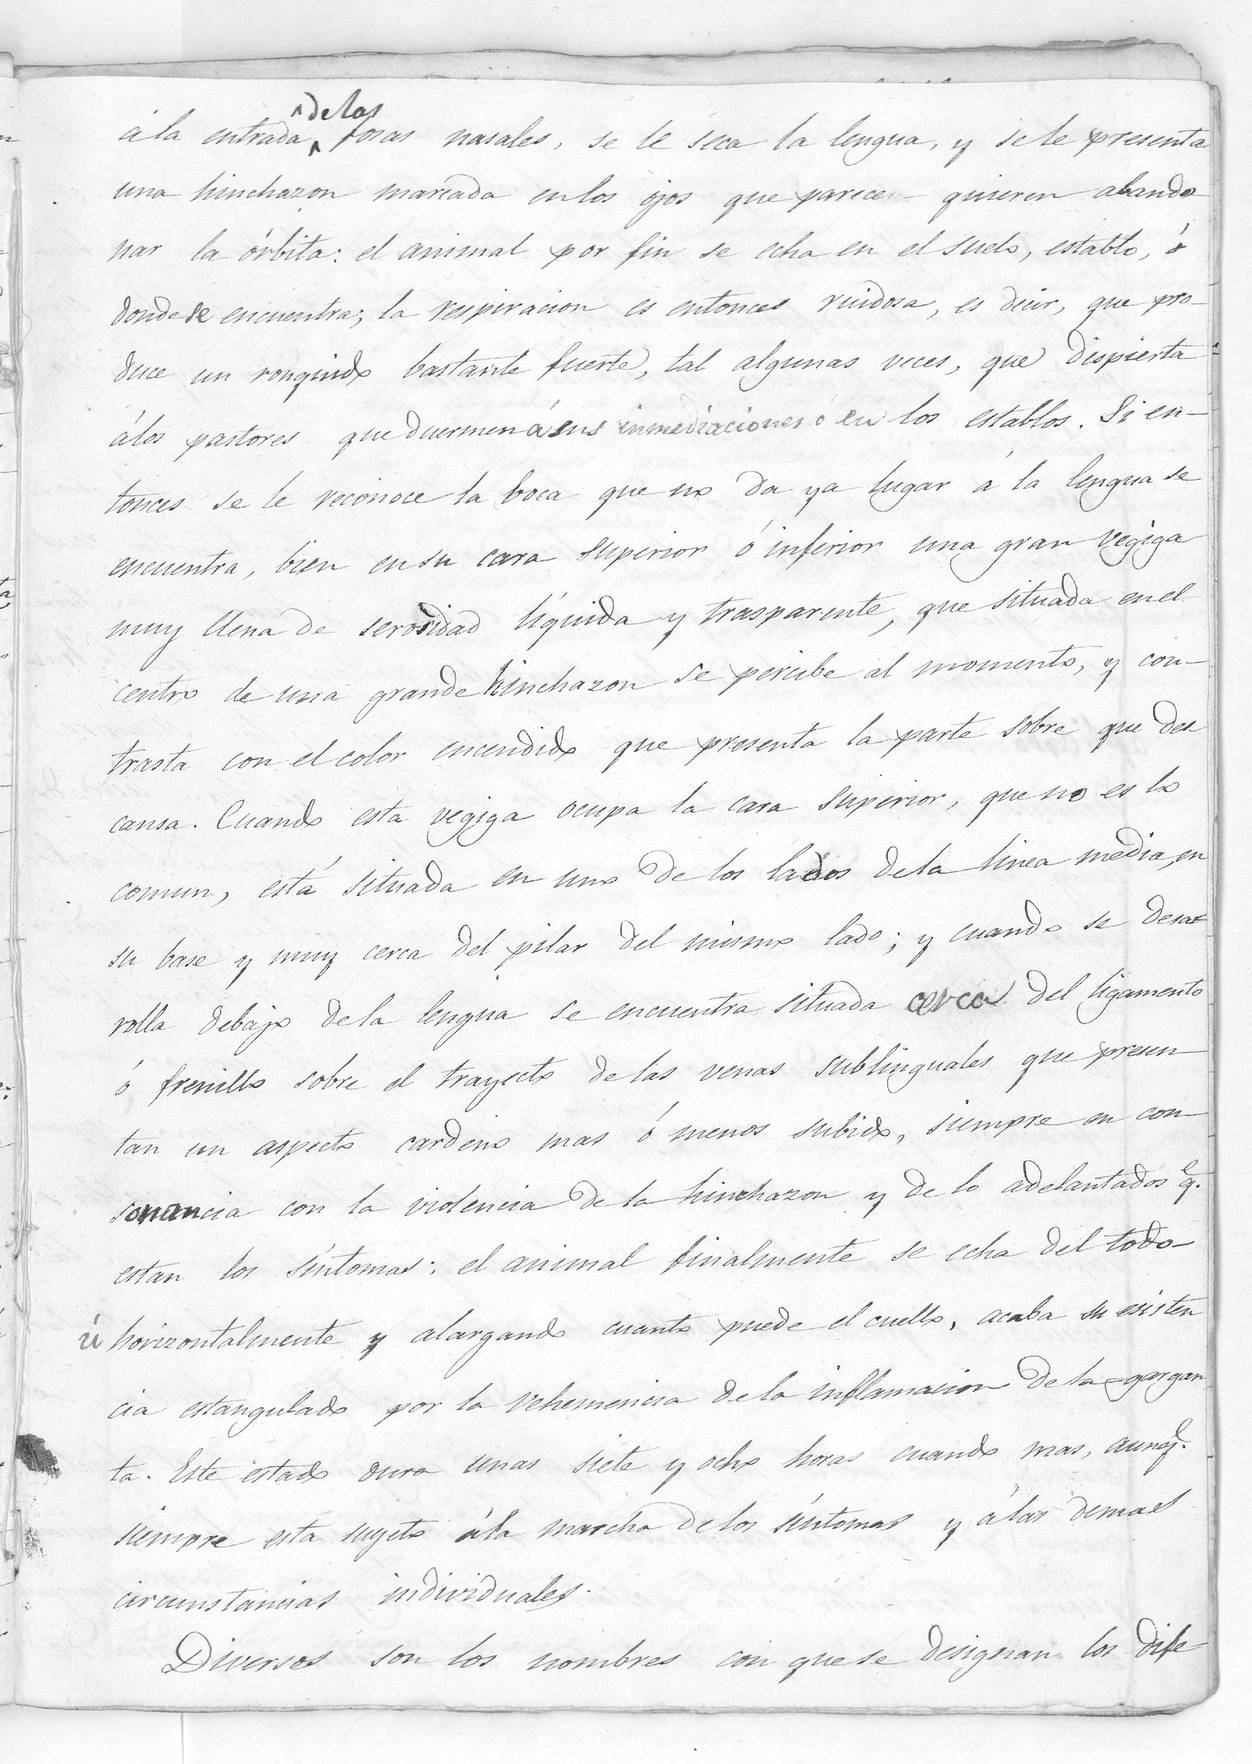 á la entrada ^de las fosas nasales, se le seca la lengua, y se le presenta
una hinchazon marcada en los ojos que parece – quieren abando
nar la órbita: el animal por fin se echa en el suelo, establo, ó
donde se encuentra; la respiracion es entonces ruidosa, es decir, que pro-
duce un ronquido bastante fuerte, tal algunas veces, que dispierta
á los pastores que duermen á sus inmediaciones ó en los establos. Si en-
tonces se le reconoce la boca que no da ya lugar á la lengua se
encuentra, bien en su cara superior ó inferior una gran vegiga
muy llena de serosidad líquida y trasparente, que situada en el
centro de una grande hinchazon se percibe al momento, y con-
trasta con el color encendido que presenta la parte sobre que des
cansa. Cuando esta vegiga ocupa la cara superior, que no es lo
comun, está situada en uno de los lados de la linea media, en
su base y muy cerca del pilar del mismo lado; y cuando se desar
rolla debajo de la lengua se encuentra situada cerca del ligamento
ó frenillo sobre el trayecto de las venas sublinguales que presen-
tan un aspecto cardeno mas ó menos subido, siempre en con-
sonancia con la violencia de la hinchazon y de lo adelantados q.e
estan los síntomas: el animal finalmente se echa del todo –
ú horizontalmente y alargando cuanto puede el cuello, acaba su esisten
cia estangulado por la vehemencia de la inflamacion de la gargan
ta. Este estado dura unas siete y ocho horas cuando mas, aunq.e
siempre esta sugeto á la marcha de los síntomas y á las demas
circunstancias individuales.
Diversos son los nombres con que se designan los dife-